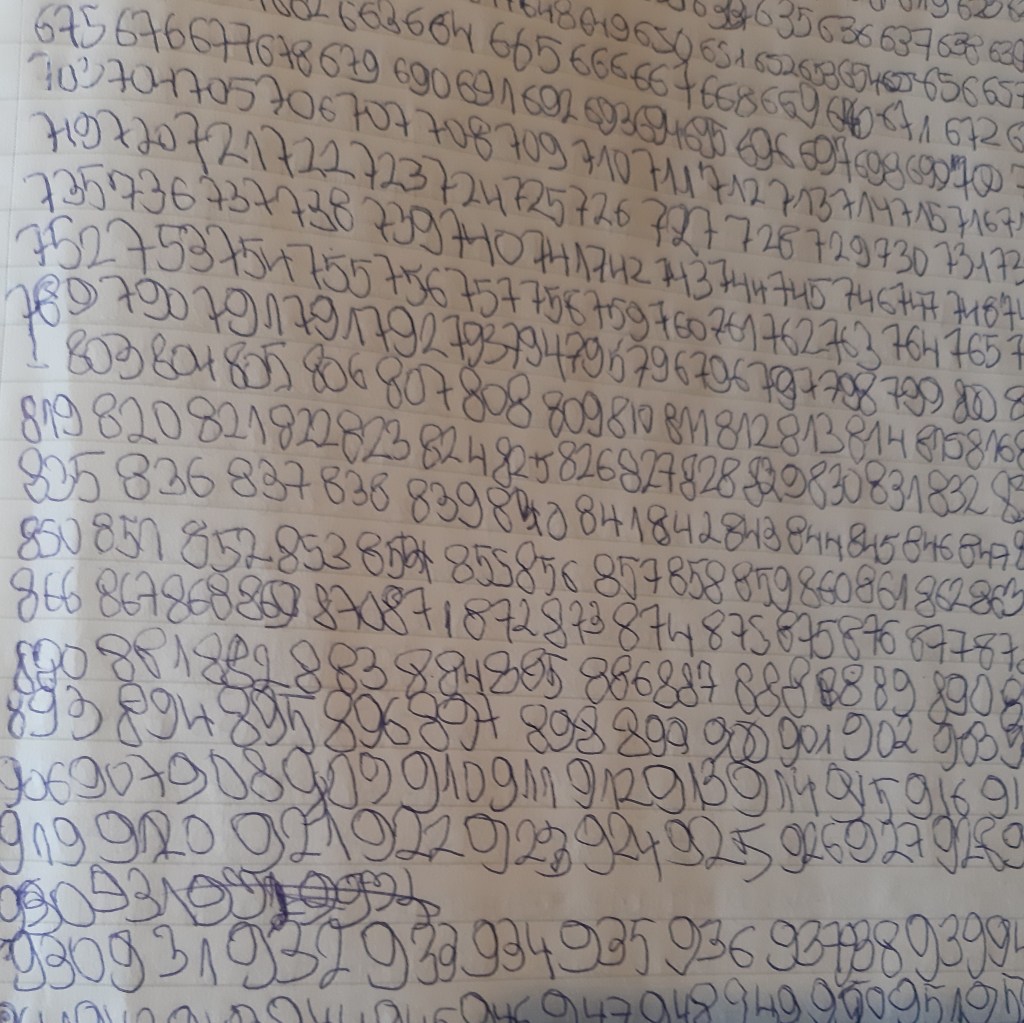 662 663 664 665 666 667 668 669 670 671 672
675 676 677 678 679 690 691 692 693 694 695 696 697 698 699 700
703 704 705 706 707 708 709 710 711 712 713 714 715 716
719 720 721 722 723 724 725 726 727 728 729 730 731
735 736 737 738 739 740 741 742 743 744 745 746 747 748
752 753 754 755 756 757 758 759 760 761 762 763 764 765
789 790 791 791 792 793 794 795 796 796 797 798 799 800
803 804 805 806 807 808 809 810 811 812 813 814 815 816
819 820 821 822 823 824 825 826 827 828 829 830 831 832
835 836 837 838 839 840 841 842 843 844 845 846 847
850 851 852 853 854 855 856 857 858 859 860 861 862 863
866 867 868 869 870 871 872 873 874 875 875 876 877
880 881 882 883 884 885 886 887 888 889 890
893 894 895 896 897 898 899 900 901 902 903
906 907 908 909 910 911 912 913 914 915 916
919 920 921 922 923 924 925 926 927 928
930 931
930 931 932 933 934 935 936 937 938 939
946 947 948 949 950 951